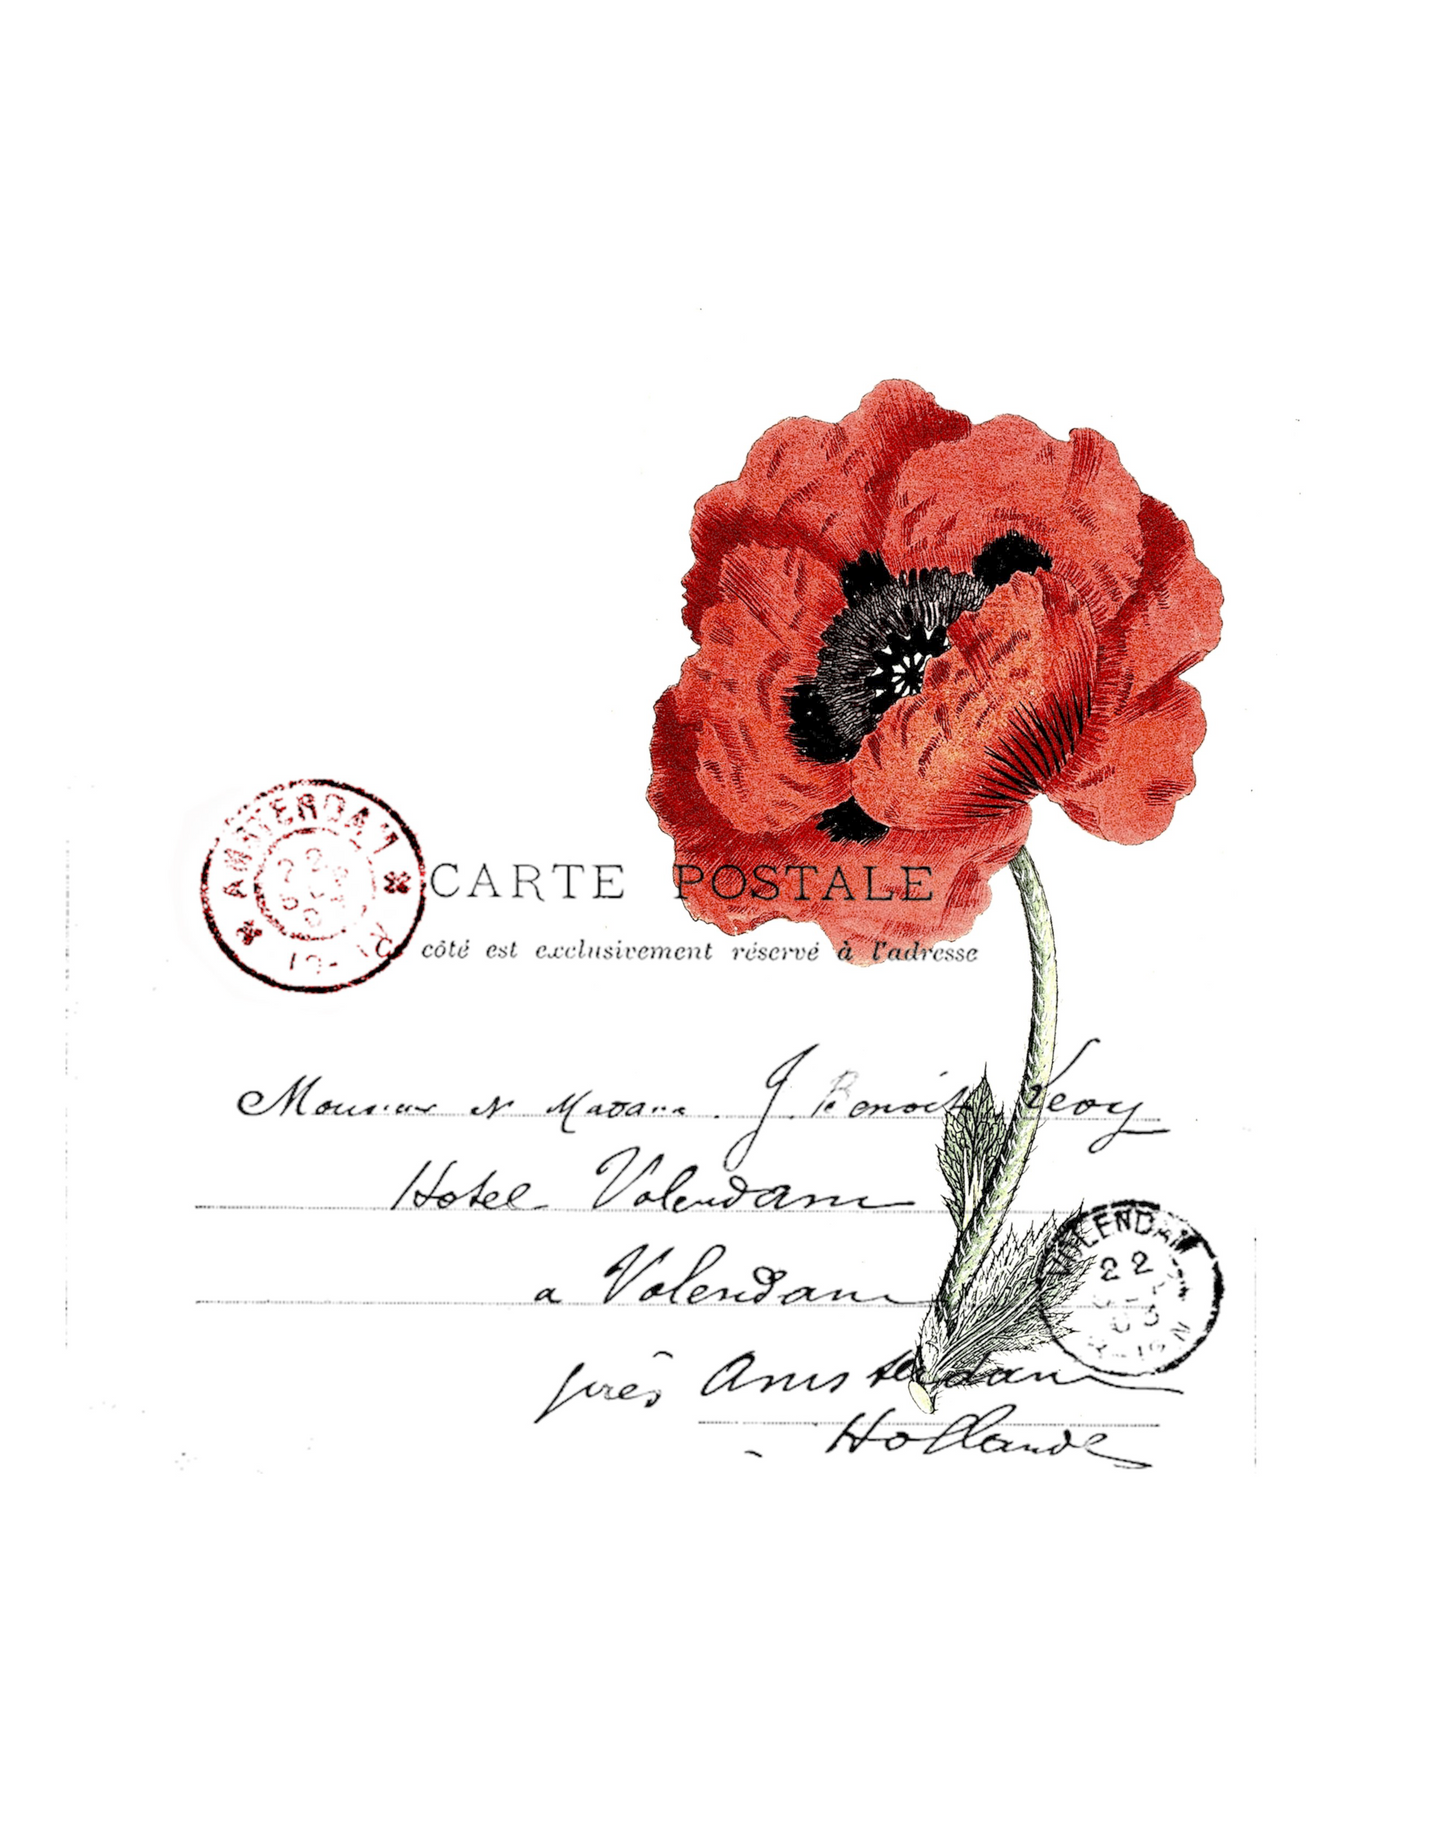 AMSTERDAM
22
CARTE POSTALE
côté est exclusivement réservé à l'adresse
Monsieur et Madame J. Benoit Levy
Hotel Volendam
a Volendam
VOLENDAM
22
près Amsterdam
Hollande